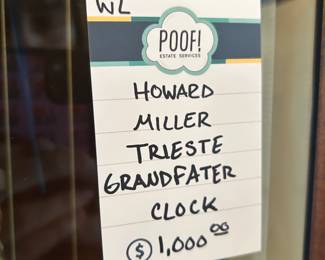 WL
POOF!
ESTATE SERVICES
HOWARD
MILLER
TRIESTE
GRANDFATER
CLOCK
$ 1,000 00